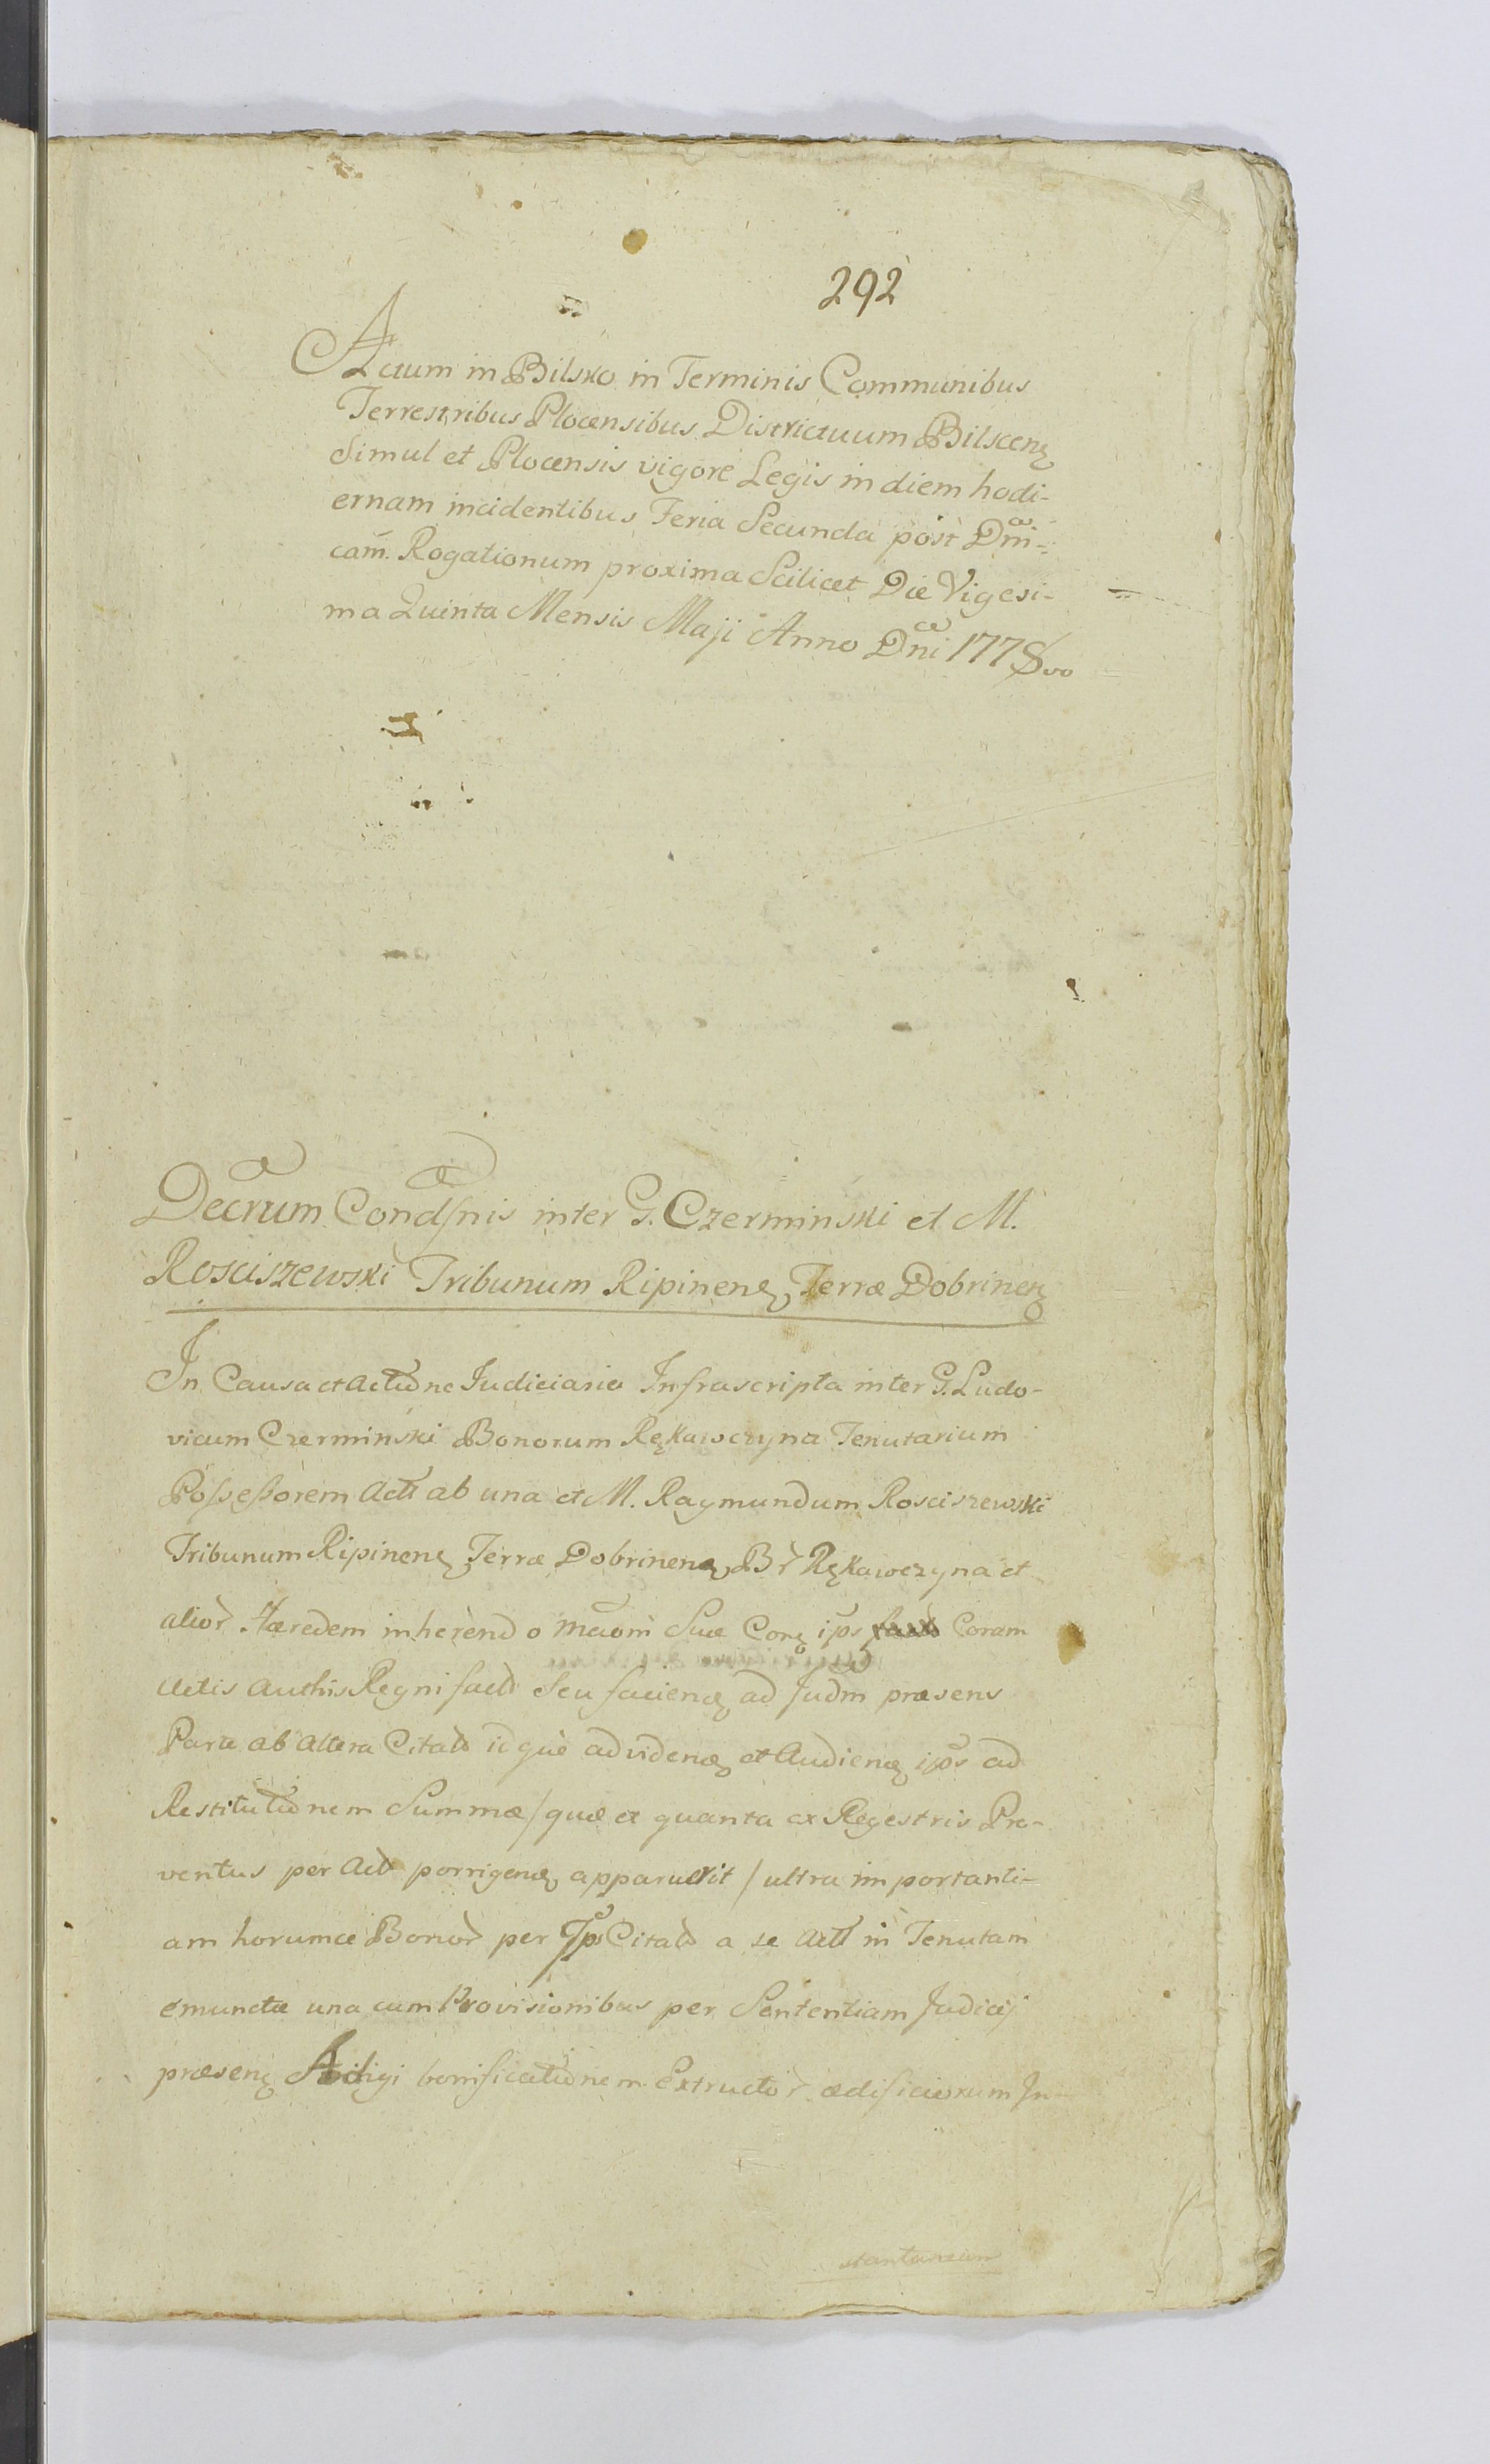 292
Actum in Bilsko in Terminis Communibus
Terrestribus Plocensibus Districtuum Bilscenę
Simul et Plocensis vigore Legis in diem hodi-
ernam incidentibus Feria Secunda post Dni-
cam Rogationum proxima Scilicet Die Vigesi-
ma Quinta Mensis Maji Anno Dni 1778vo
Decrum Condsnis inter G. Czerminski et M.
Rosciszewski Tribunum Ripinenę Terræ Dobrinenę
In Causa et Actione Judiciaria Infrascripta inter G. Ludo-
vicum Czermiński Bonorum Rękawczyna Tenutarium
Possessorem Act ab una et M. Raymundum Rosciszewski
Tribunum Ripinenę Terræ Dobrinenę Br Rękawczyna et
alior Hæredem inhærendo Suæ Corę ips Coram
Actis Authis Regni fact seu facienę ad Judm præsens
Parte ab altera Citat idque ad videnę et Audienę ips ad
Restitutionem Summæ / quæ et quanta ex Regestris Pro-
ventus per Act porrigenę apparuerit / ultra importanti-
am horumce Bonor per Ips Citat a se Act in Tenutam
emunctæ una cum Provisionibus per Sententiam Judicij
præsenę Adigi bonificationem Extructor ædificiorum In-
stantaneam